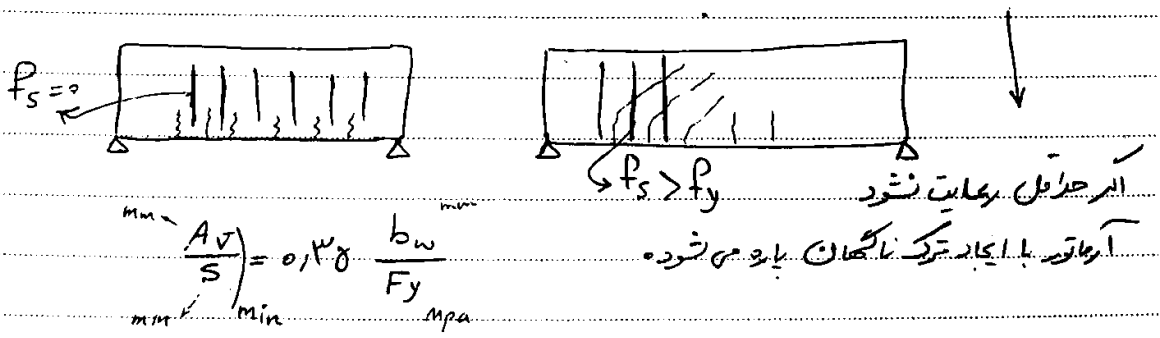 fs = 0
fs > fy
اگر حداقل رعایت نشود
آرماتور با ایجاد ترک ناگهان پاره می شود.
mm mm
Av/S)min = 0,35 bw/Fy
mm Mpa